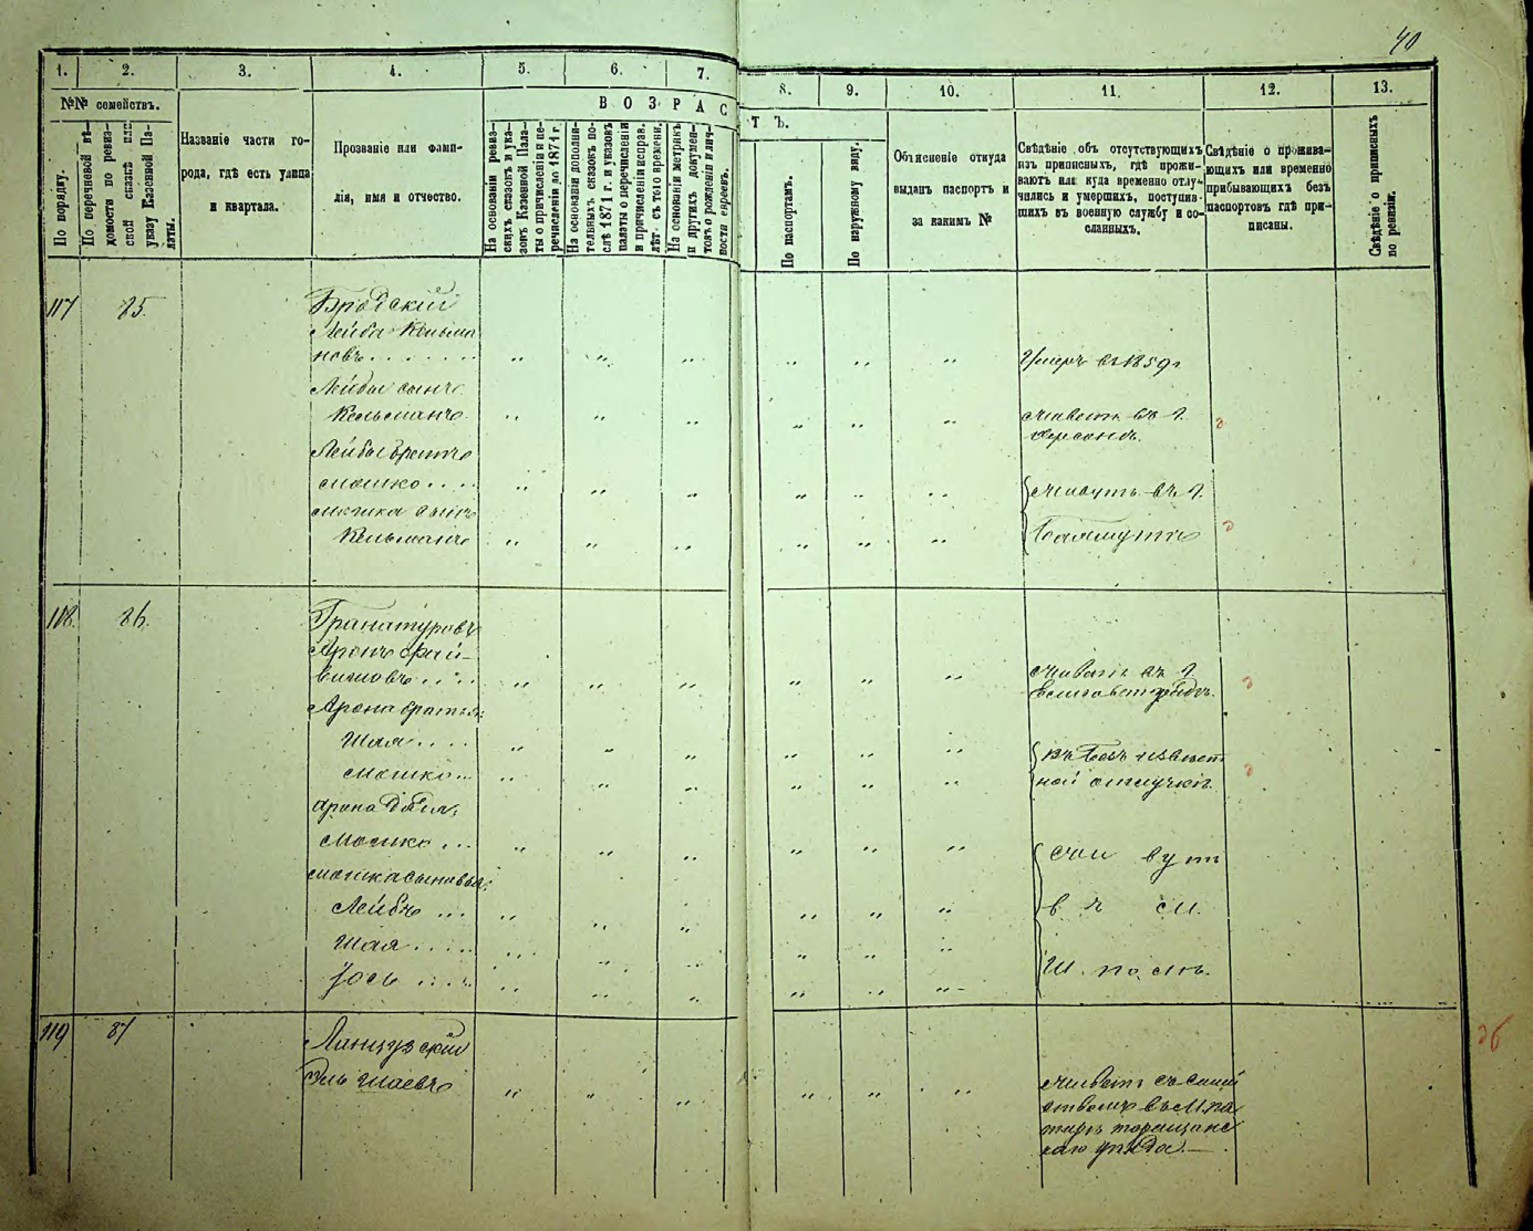 40
1. 2. 3. 4. 5. 6. 7. 8. 9. 10. 11. 12. 13.
№№ семействъ.
По порядку.
По перечневой вѣ-
домости по ревиз-
ской сказкѣ или
указу Казенной Па-
латы.
Названіе части го-
рода, гдѣ есть улица
и квартала.
Прозваніе или фами-
лія, имя и отчество.
ВОЗРАСТЪ.
На основаніи ревиз-
скихъ сказокъ и ука-
зовъ Казенной Пала-
ты о причисленіи и пе-
речисленіи до 1871 г.
На основаніи дополни-
тельныхъ сказокъ по-
слѣ 1871 г. и указовъ
палаты о перечисленіи
и причисленіи исправ.
лѣт. съ того времени.
На основаніи метрикъ
и другихъ докумен-
товъ о рожденіи и лич-
ности евреевъ.
По паспортамъ.
По наружному виду.
Объясненіе откуда
выданъ паспортъ и
за какимъ №
Свѣдѣніе объ отсутствующихъ
изъ приписныхъ, гдѣ прожи-
ваютъ или куда временно отлу-
чились и умершихъ, поступив-
шихъ въ военную службу и со-
сланныхъ.
Свѣдѣніе о прожива-
ющихъ или временно
прибывающихъ безъ
паспортовъ гдѣ при-
писаны.
Свѣдѣніе о приписныхъ
по ревизіи.
117 85.
Бродскій
Лейба Кельма
новъ . . . . . . Умеръ въ 1859 г
Лейбы сынъ
Кельманъ живетъ въ г.
Херсонѣ.
Лейбы братъ
Мошко . . . . живутъ въ г.
Мошка сынъ
Кельманъ
118. 86.
Гранатуровъ
Аронъ Фай-
вишовъ . . . . живетъ въ г.
Елисаветградѣ.
Арона братья:
Шая . . . . въ безъ извѣст
Мошко . . . ной отлучкѣ.
Арона дядя:
Мошко . . . жи вутъ
Мошка сыновья:
Лейбъ . . . въ м.
Шая . . . .
Іось . . . . Ш. полѣ.
119 87
Ланцузскій
Эль Шаевъ живетъ съ семей
ствомъ въ м.
скаго уѣзда.